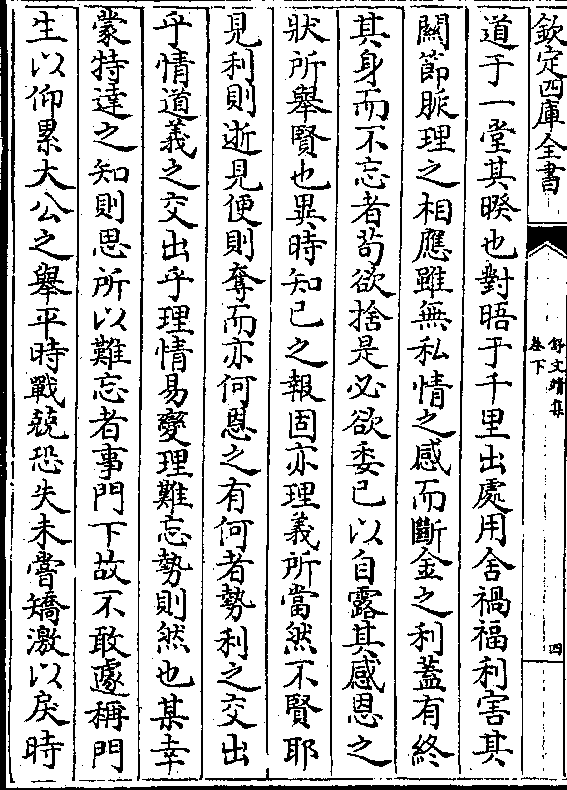 欽定四庫全書
舒文靖集
卷下
四
道于一堂其暌也對晤于千里出處用舍禍福利害其
闗節脈理之相應雖無私情之感而斷金之利蓋有終
其身而不忘者苟欲捨是必欲委已以自露其感恩之
狀所舉賢也異時知已之報固亦理義所當然不賢耶
見利則逝見便則奪而亦何恩之有何者勢利之交出
乎情道義之交出乎理情易變理難忘勢則然也某幸
蒙特達之知則思所以難忘者事門下故不敢遽稱門
生以仰累大公之舉平時戰兢恐失未嘗矯激以戾時